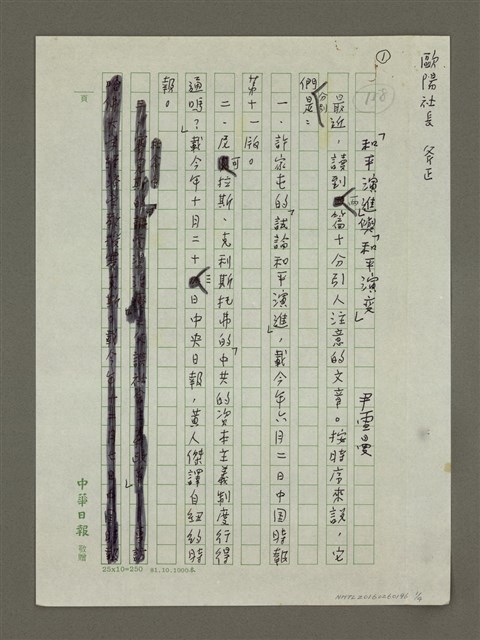 歐陽社長 斧正
①
118
「和平演進」與「和平演變」 尹雪曼
最近,讀到兩篇十分引人注意的文章。按時序來說,它
們分別是:
一、許家屯的「試論和平演進」,載今年六月二日中國時報
第十一版。
二、尼可拉斯、克利斯托弗的「中共的資本主義制度行得
通嗎?」載今年十月二十三日中央日報,黃人傑譯自紐約時
報。
頁
中華日報 敬贈
25x10=250 81.10.1000本
NMTL20160260196 1/6